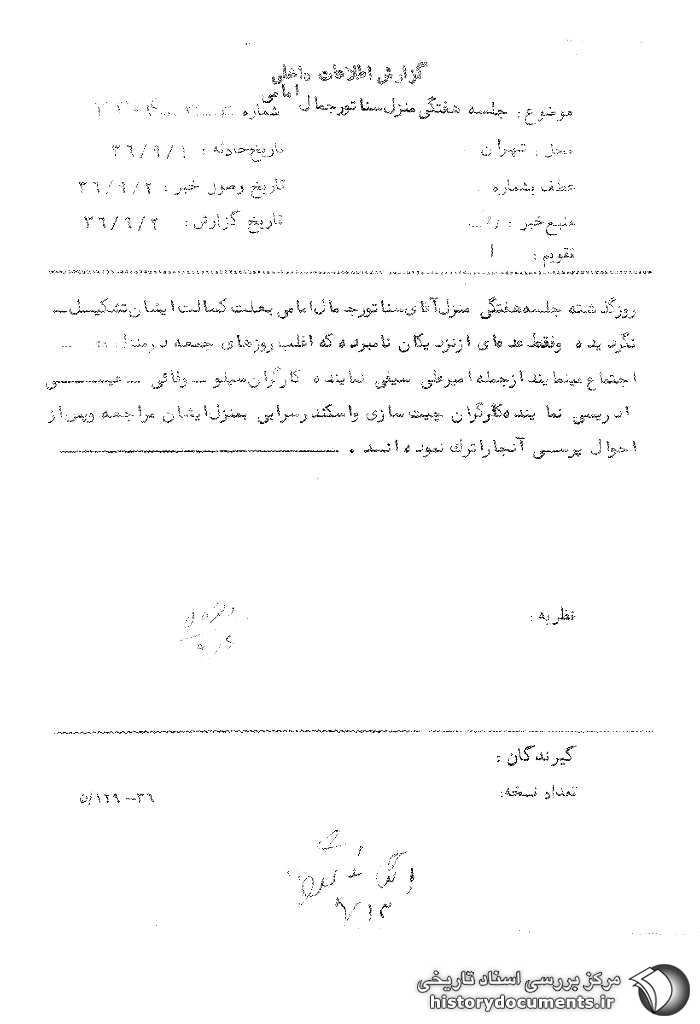 گزارش اطلاعات داخلی
موضوع : جلسه هفتگی منزل سناتور جمال امامی شماره
محل : تهران تاریخ حادثه : ۳۶/۹/۱
عطف بشماره تاریخ وصول خبر : ۳۶/۹/۲
منبع خبر : تاریخ گزارش : ۳۶/۹/۲
تقویم : ۱
روز گذشته جلسه هفتگی منزل آقای سناتور جمال امامی بعلت کسالت ایشان تشکیل
نگردیده وفقط عده ای از نزدیکان نامبرده که اغلب روزهای جمعه در منزل
اجتماع مینمایند از جمله امیرعلی سیفی نماینده کارگران سیلو - وفائی - عیسی
ادریسی نماینده کارگران چیت سازی واسکندر سرابی بمنزل ایشان مراجعه وپس از
احوال پرسی آنجا را ترک نموده اند .
نظریه :
گیرندگان :
تعداد نسخه: ۳۶-۱۲۹/ن
۹/۱۳
مرکز بررسی اسناد تاریخی
historydocuments.ir